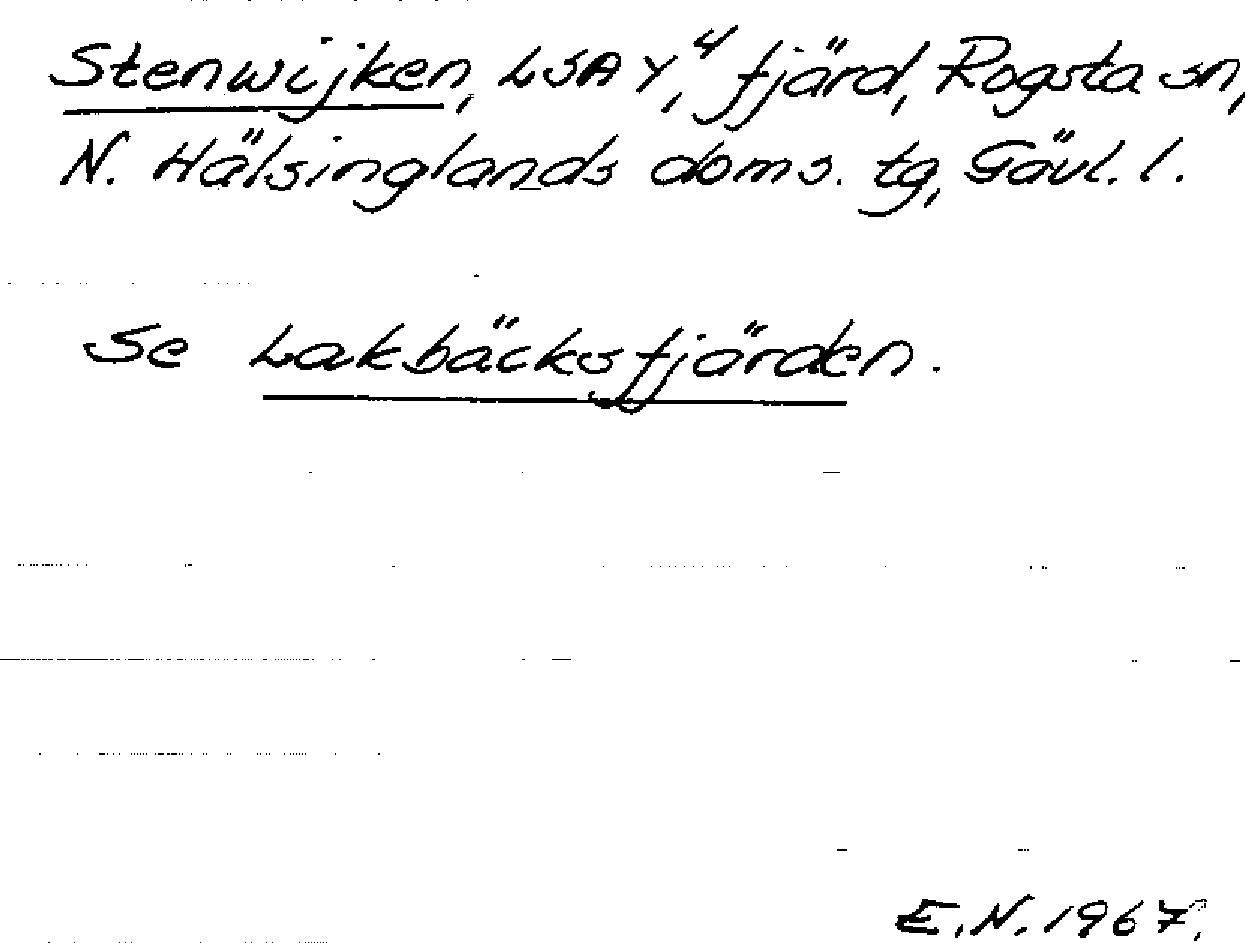 Stenwijken, LSA Y,⁴ fjärd, Rogsta sn,
N. Hälsinglands doms. tg, Gävl. l.
Se Lakbäcksfjärden.
E.N. 1967.